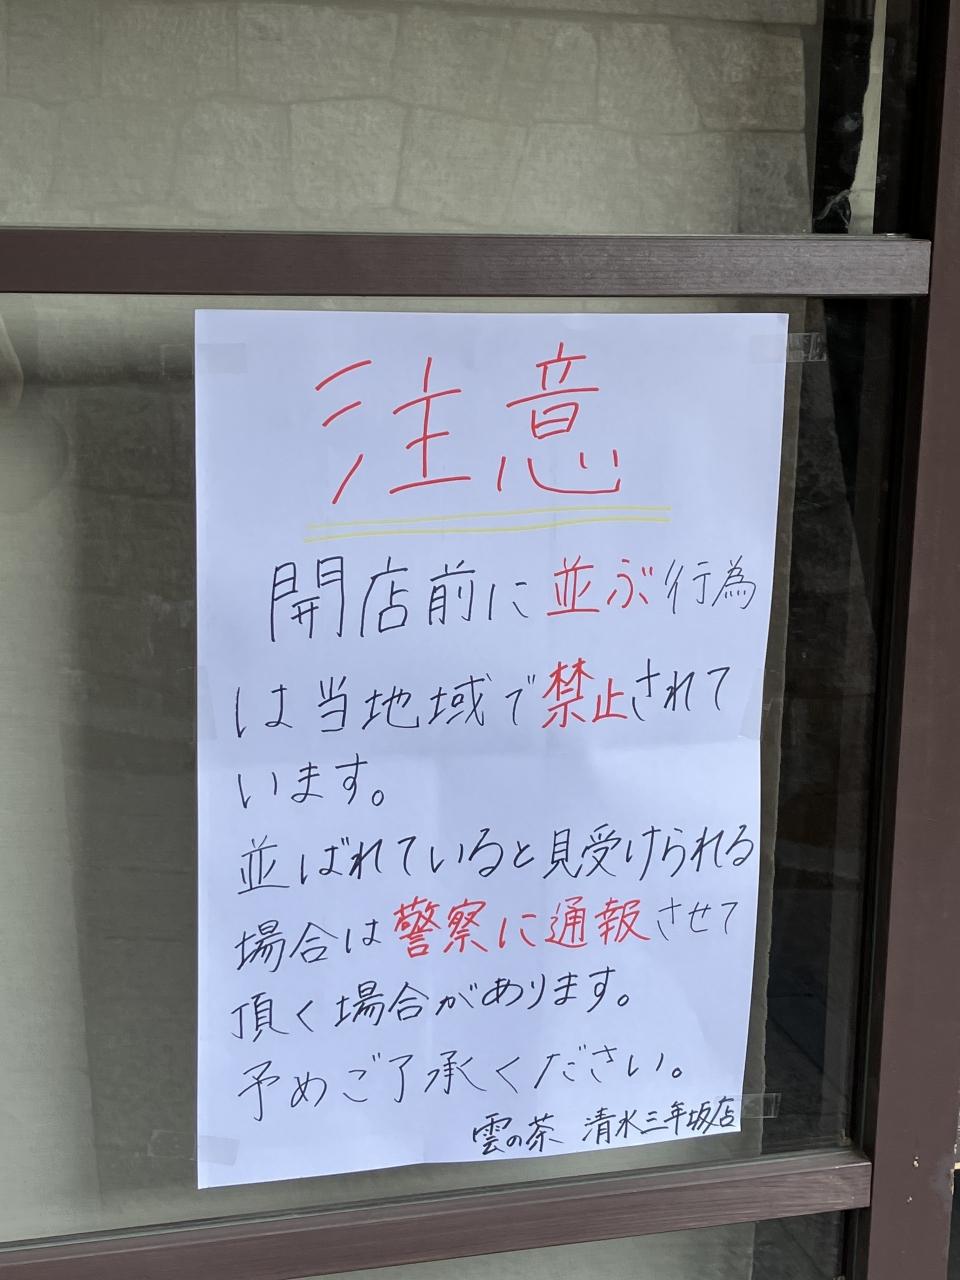 注意
開店前に並ぶ行為
は当地域で禁止されて
います。
並ばれていると見受けられる
場合は警察に通報させて
頂く場合があります。
予めご了承ください。
雲の茶 清水三年坂店